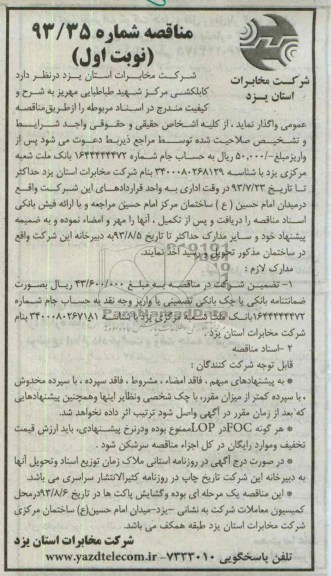 مناقصه شماره ۹۳/۳۵
(نوبت اول)
شرکت مخابرات
استان یزد
شرکت مخابرات استان یزد درنظر دارد
کابلکشی مرکز شهید طباطبایی مهریز به شرح و
کیفیت مندرج در اسناد مربوطه را ازطریق‌مناقصه
عمومی واگذار نماید ، از کلیه اشخاص حقیقی و حقوقی واجد شرایط
و تشخیص صلاحیت شده توسط مراجع ذیربط دعوت می شود پس از
واریزمبلغ-/۵۰,۰۰۰ ریال به حساب جام شماره ۱۶۴۴۴۴۴۴۷۲ بانک ملت شعبه
مرکزی یزد با شناسه ۳۴۰۰۰۸۰۲۶۸۱۲۹ بنام شرکت مخابرات استان یزد حداکثر
تا تاریخ ۹۳/۷/۲۳ در وقت اداری به واحد قراردادهای این شرکت واقع
درمیدان امام حسین ( ع ) ساختمان مرکز امام حسین مراجعه و با ارائه فیش بانکی
اسناد مناقصه را دریافت و پس از تکمیل ، آنها را مهر و امضاء نموده و به ضمیمه
پیشنهاد خود و سایر مدارک حداکثر تا تاریخ ۹۳/۸/۵به دبیرخانه این شرکت واقع
در ساختمان مذکور تحویل و رسید اخذ نمایند.
مدارک لازم :
۱- تضمین شرکت در مناقصه به مبلغ ۴۳/۶۰۰/۰۰۰ ریال بصورت
ضمانتنامه بانکی یا چک بانکی تضمینی یا واریز وجه نقد به حساب جام شماره
۱۶۴۴۴۴۴۴۷۲بانک ملت شعبه مرکزی یزد با شناسه ۳۴۰۰۰۸۰۲۶۷۱۸۱ بنام
شرکت مخابرات استان یزد .
۲-اسناد مناقصه
قابل توجه شرکت کنندگان :
* به پیشنهادهای مبهم ، فاقد امضاء ، مشروط ، فاقد سپرده ، با سپرده مخدوش
، با سپرده کمتر از میزان مقرر، با چک شخصی ونظایر اینها وهمچنین پیشنهادهایی
که بعد از زمان مقرر در آگهی واصل شود ترتیب اثر داده نخواهد شد.
* هر گونه FOCدر LOPممنوع بوده ودرنرخ پیشنهادی، باید ارزش قیمت
تخفیف وموارد رایگان در کل اجزاء مناقصه سرشکن شود .
* در صورت درج آگهی در روزنامه استانی ملاک زمان توزیع اسناد وتحویل آنها
به دبیرخانه این شرکت تاریخ چاپ در روزنامه کثیرالانتشار سراسری می باشد.
* این مناقصه یک مرحله ای بوده وگشایش پاکت ها در تاریخ ۹۳/۸/۶درمحل
کمیسیون معاملات شرکت به نشانی -یزد-میدان امام حسین(ع) ساختمان مرکزی
شرکت مخابرات استان یزد طبقه همکف می باشد.
شرکت مخابرات استان یزد
تلفن پاسخگویی ۷۳۳۳۰۱۰- www.yazdtelecom.ir